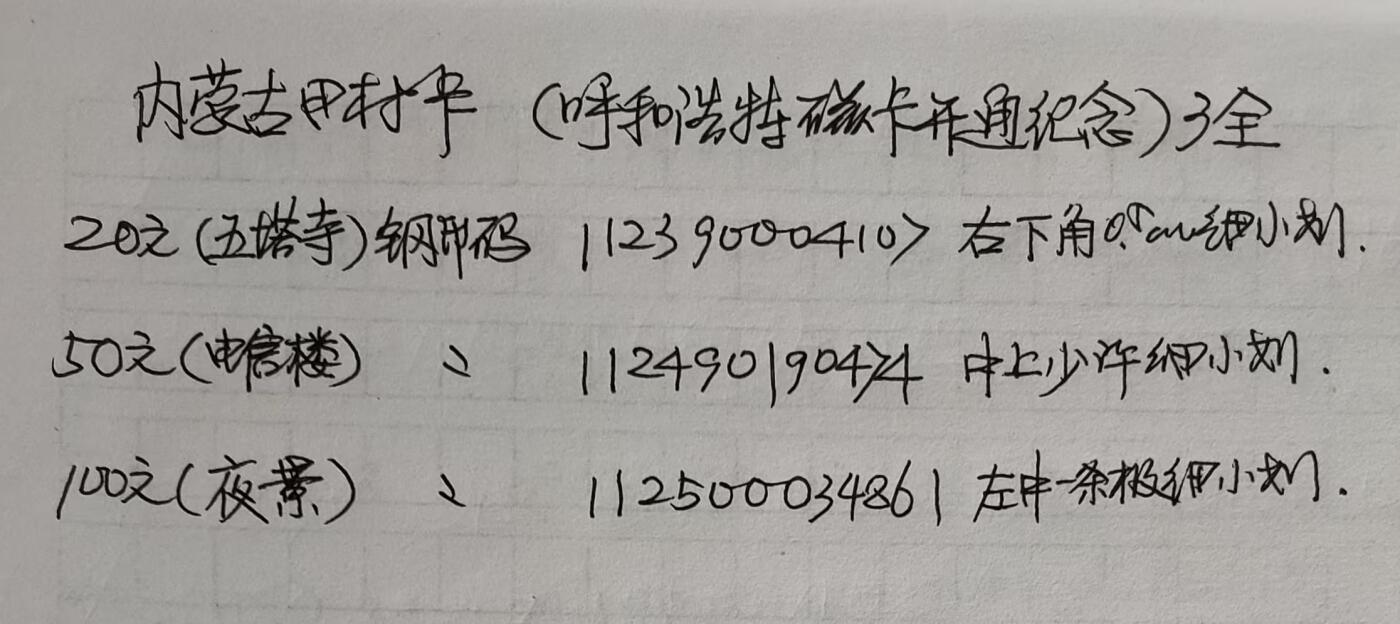 内蒙古田村卡 (呼和浩特磁卡开通纪念) 3全
20元 (五塔寺) 钢印码 112390004107 右下角0.5cm细小划.
50元 (电信楼) 〃 112490190474 中上少许细小划.
100元 (夜景) 〃 112500034861 左中一条极细小划.